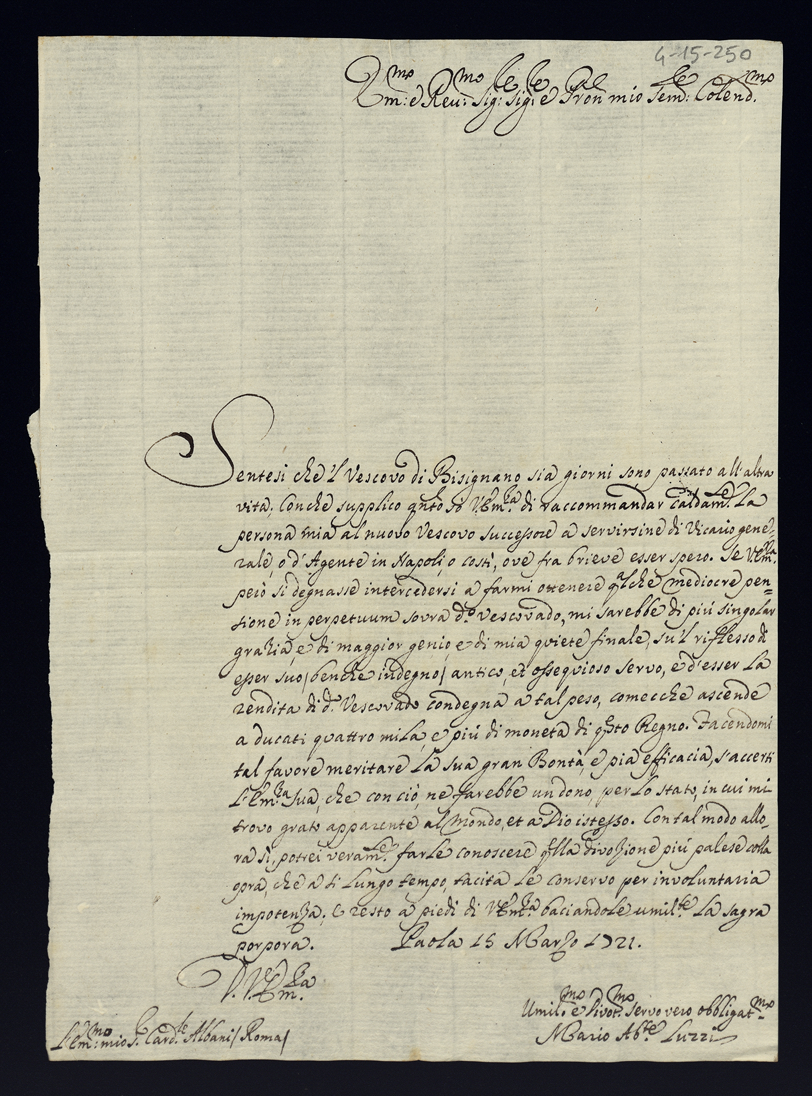 4-15-250
Em:mo e Reu:mo Sig:re Sig:re e Pron mio Sem:re Colend.mo
Sentesi che'l Vescovo di Bisignano sia giorni sono passato all'altra
vita; Conche supplico qnto so V.Em:za di raccommandar caldam:te La
persona mia al nuovo Vescovo successore a servirsine di Vicario gene-
rale, o d'Agente in Napoli, o costì, ove fra brieve esser spero. Se V.Em:za
però si degnasse intercedersi a farmi ottenere qlche mediocre pen=
sione in perpetuum sovra d:o Vescovado, mi sarebbe di più singolar
grazia, e di maggior genio, e di mia quiete finale, su'l riflesso di
esser suo/benche indegno/antico, et ossequioso servo, e d'esser La
rendita di d:o Vescovado condegna a tal peso, comecche ascende
a ducati quattro mila, e più di moneta di qsto Regno. Facendomi
tal favore meritare La sua gran Bontà, e pia efficacia, s'accerti
L'Em:za sua, che con ciò, ne farebbe un dono, per Lo stato, in cui mi
trovo grato apparente al Mondo, et a Dio istesso. Con tal modo allo-
ra sì, potrei veram:te farLe conoscere qlla divozione più palese colla
opra, che a sì Lungo tempo, tacita Le conservo, per involuntaria
impotenza, E resto a piedi di V.Em:za baciandole umil:te La sagra
porpora. Paola 15 Marzo 1721.
D. V. Em:za
Umil:mo e Divot:mo servo vero obbligat:mo
L'Em:mo mio S.r Card:le Albani/Roma/
Mario Ab:te Luzzi